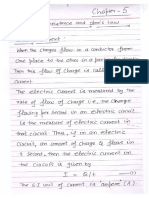 Chapter-5
Resistance and ohm's law
Current :-
When the charges flow in a conductor from
One place to the other in a particular
then the flow of charge is called
Current.
The electric current is measured by the
rate of flow of charge i.e. the charge
flowing per second in an electric circuit
is the measure of electric current in
that circuit. Thus, if in an electric
Circuit, an amount of charge Q flows in
t second, then the electric current in
the Circuit is given by
I = Q/t
The S.I unit of current is ampere (A)